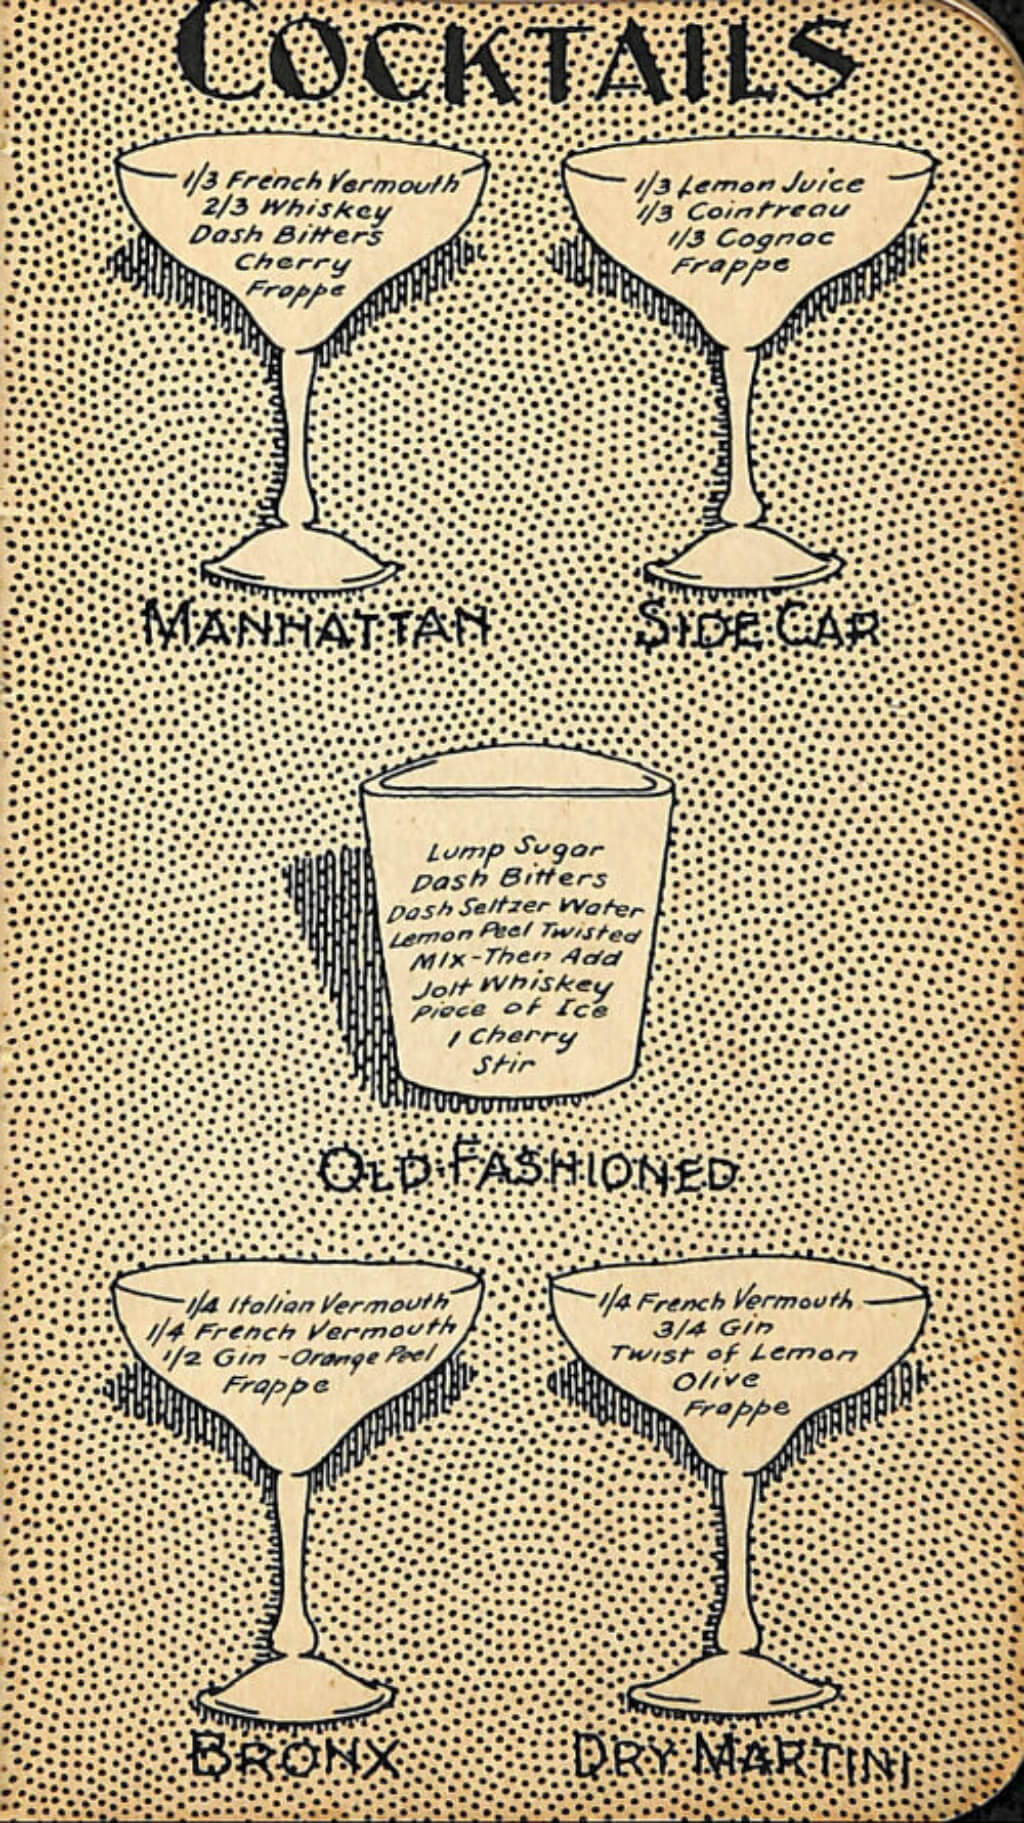 COCKTAILS
1/3 French Vermouth
2/3 Whiskey
Dash Bitters
Cherry
Frappe
MANHATTAN
1/3 Lemon Juice
1/3 Cointreau
1/3 Cognac
Frappe
SIDE CAR
Lump Sugar
Dash Bitters
Dash Seltzer Water
Lemon Peel Twisted
Mix-Then Add
Jolt Whiskey
Piece of Ice
1 Cherry
Stir
OLD-FASHIONED
1/4 Italian Vermouth
1/4 French Vermouth
1/2 Gin - Orange Peel
Frappe
BRONX
1/4 French Vermouth
3/4 Gin
Twist of Lemon
Olive
Frappe
DRY MARTINI